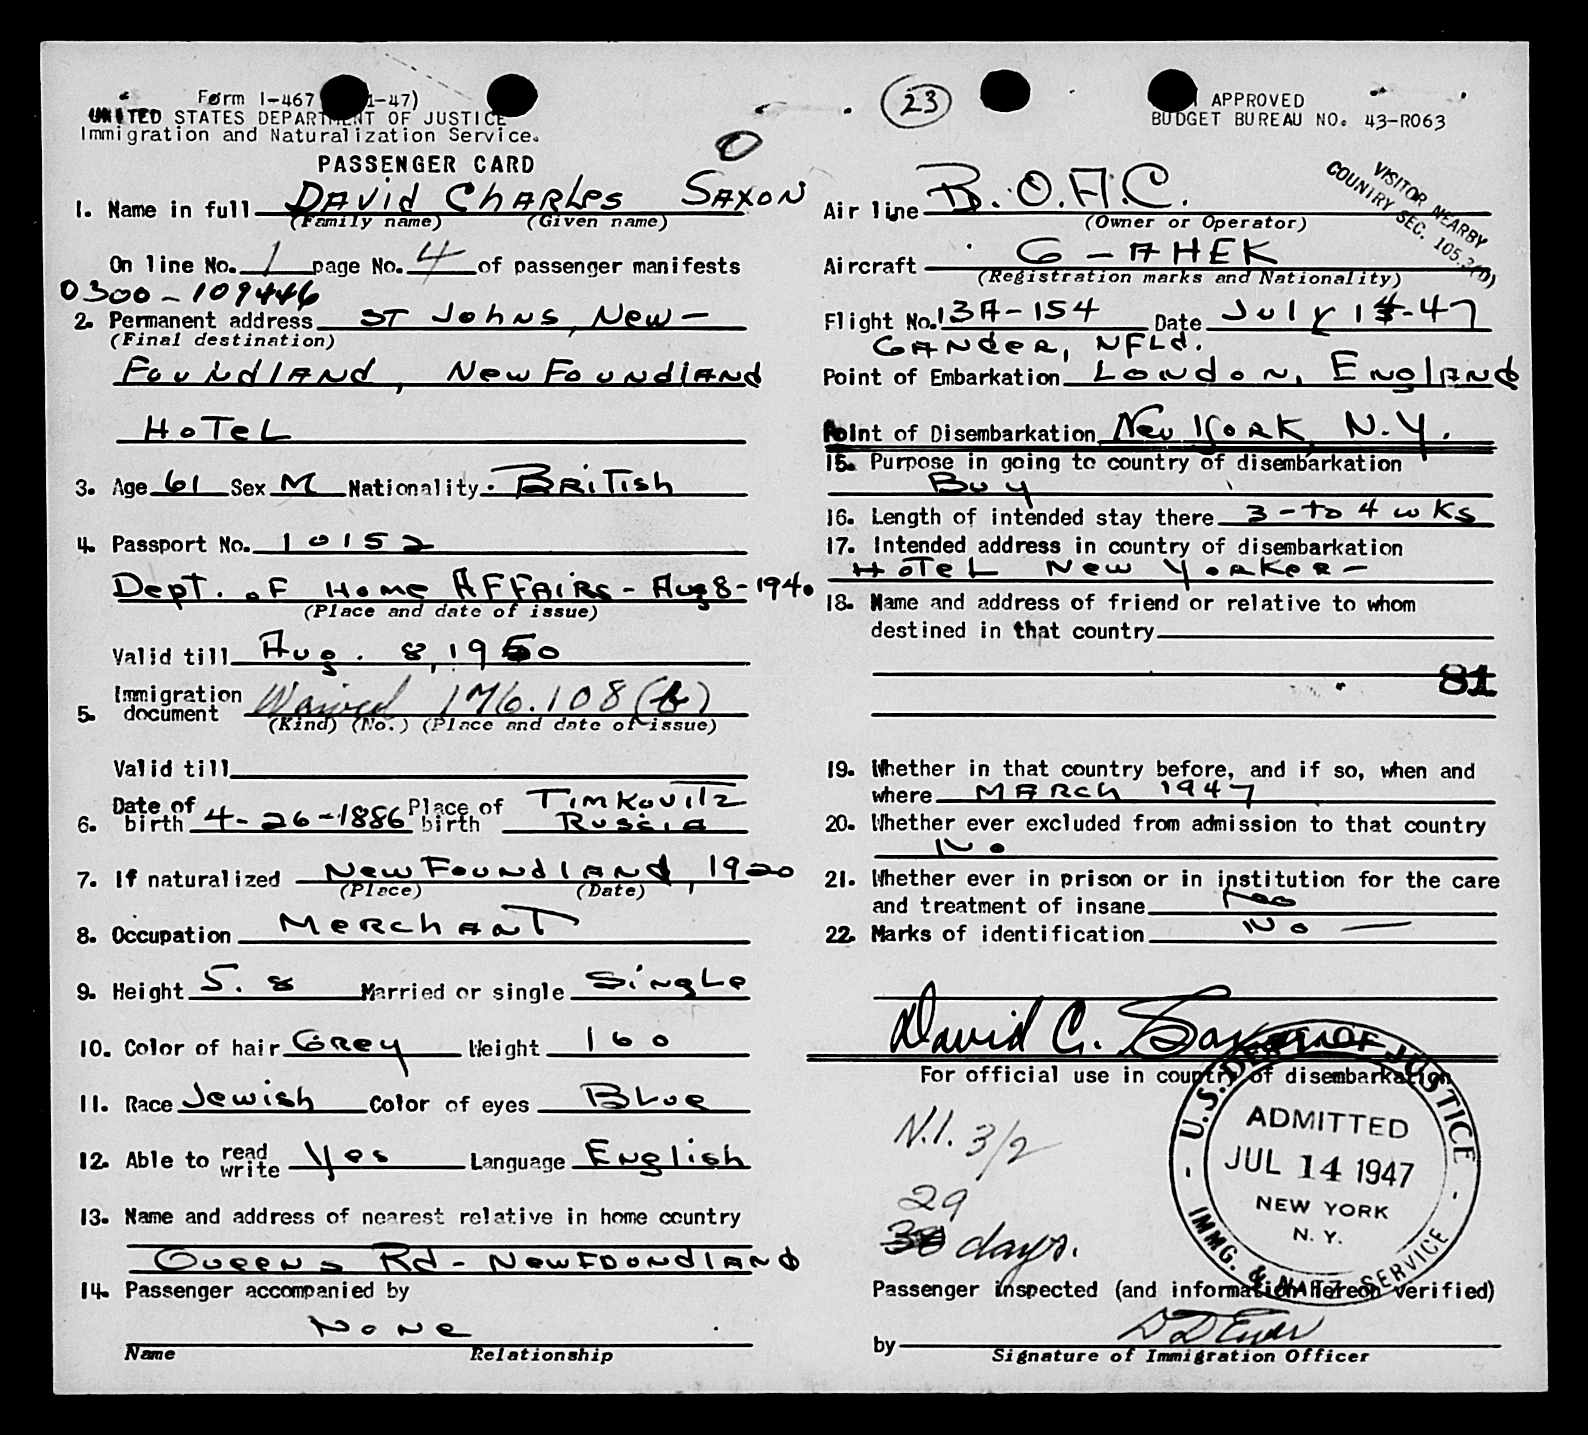 Form I-467 1-47)
UNITED STATES DEPARTMENT OF JUSTICE
Immigration and Naturalization Service.
PASSENGER CARD
O
1. Name in full DAVid ChARLes SAXON
(Family name) (Given name)
On line No. 1 page No. 4 of passenger manifests
0300-109446
2. Permanent address ST JohNS, New-
(Final destination)
FouNdlANd, NewFouNdlANd
HoTeL
3. Age 61 Sex M Nationality. BRiTish
4. Passport No. 10152
Dept. oF Home AFFAiRs - Aug 8-1940
(Place and date of issue)
Valid till Aug. 8, 1950
5. Immigration document Waived 176.108(b)
(Kind) (No.) (Place and date of issue)
Valid till
6. Date of birth 4-26-1886 Place of birth TimKoviTz RussiA
7. If naturalized NewFouNdlANd, 1920
(Place) (Date)
8. Occupation MeRchANT
9. Height 5.8 Married or single SiNgLe
10. Color of hair GRey Weight 160
11. Race Jewish Color of eyes BLue
12. Able to read write Yes Language ENglish
13. Name and address of nearest relative in home country
QueeNs Rd - NewFouNdlANd
14. Passenger accompanied by
NoNe
Name Relationship
23
APPROVED
BUDGET BUREAU NO. 43-R063
VISITOR NEARBY
COUNTRY SEC. 105.3(D)
Air line B.O.A.C.
(Owner or Operator)
Aircraft G-AHEK
(Registration marks and Nationality)
Flight No. 13A-154 Date July 14-47
GANdeR, NFLd.
Point of Embarkation LoNdoN, ENglANd
Point of Disembarkation New YoRK, N.Y.
15. Purpose in going to country of disembarkation
Buy
16. Length of intended stay there 3-to 4 wKs
17. Intended address in country of disembarkation
HoTeL New YoRKeR-
18. Name and address of friend or relative to whom
destined in that country
81
19. Whether in that country before, and if so, when and
where MARch 1947
20. Whether ever excluded from admission to that country
No
21. Whether ever in prison or in institution for the care
and treatment of insane No
22. Marks of identification No —
David C. Saxon
For official use in country of disembarkation
N.I. 3/2
29
30 days.
U.S. DEPT. OF JUSTICE
ADMITTED
JUL 14 1947
NEW YORK
N. Y.
IMMG. & NATZ. SERVICE
Passenger inspected (and information hereon verified)
by
Signature of Immigration Officer